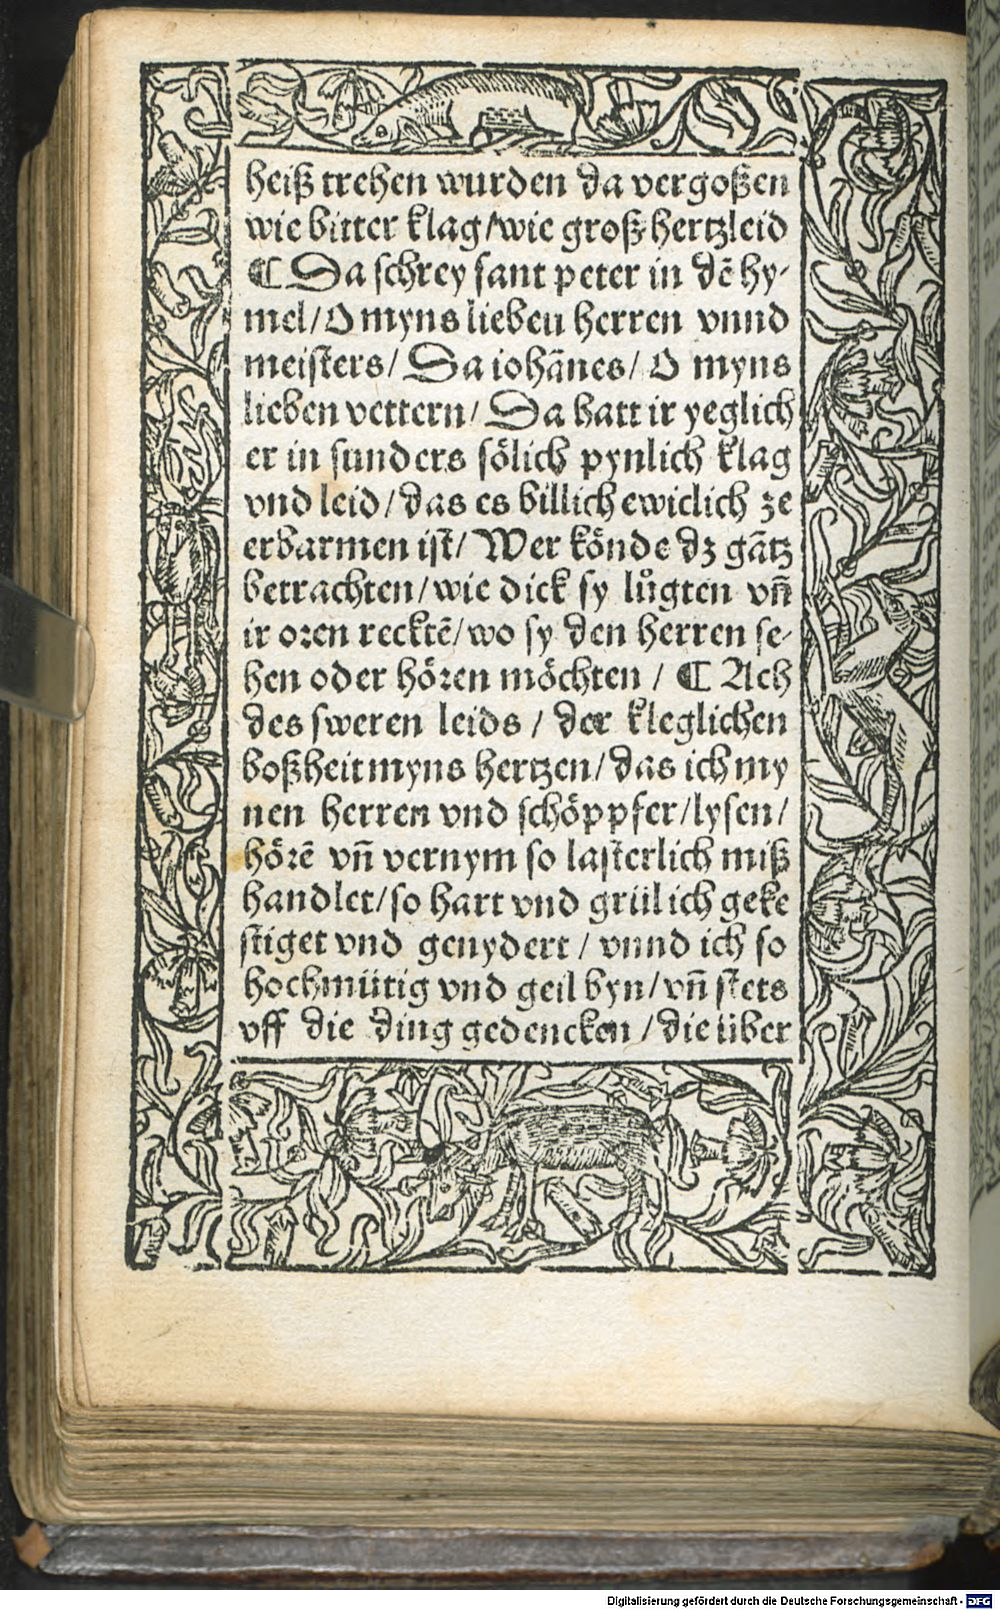 heiß trehen wurden da vergoßen
wie bitter klag/wie groß hertzleid
¶ Da schrey sant peter in dē hy-
mel/O myns lieben herren vnnd
meisters/ Da iohānes/ O myns
lieben vettern/ Da hatt ir yeglich
er in sunders sölich pynlich klag
vnd leid/das es billich ewiclich ze
erbarmen ist/ Wer könde dz gātz
betrachten/wie dick sy lůgten vn̄
ir oꝛen recktē/wo sy den herren se-
hen oder höꝛen möchten / ¶ Ach
des sweren leids / der kleglichen
boßheit myns hertzen/das ich my
nen herren vnd schöppfer/lysen/
höꝛē vn̄ vernym so lasterlich miß
handlet/so hart vnd grülich geke
stiget vnd genydert / vnnd ich so
hochmütig vnd geil byn/vn̄ stets
vff die ding gedencken /die über
Digitalisierung gefördert durch die Deutsche Forschungsgemeinschaft - DFG